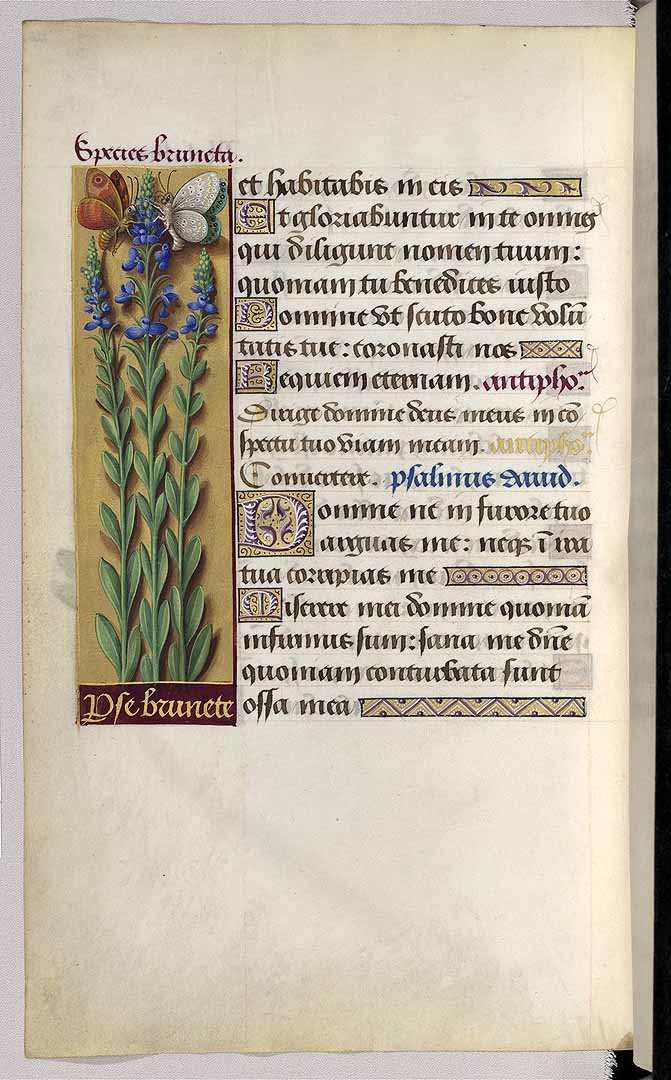 Species bruneta.
et habitabis in eis
Et gloriabuntur in te omnes
qui diligunt nomen tuum:
quoniam tu benedices iusto
Domine vt scuto bone volū
tatis tue: coronasti nos
Requiem eternam. antipho.
Dirige domine deus meus in cō
spectu tuo viam meam. antipho.
Conuertere. psalmus dauid.
Domine ne in furore tuo
arguas me: neqʒ ī ira
tua corripias me
Miserere mei domine quoniā
infirmus sum: sana me dn̄e
quoniam conturbata sunt
ossa mea
Pse brunete